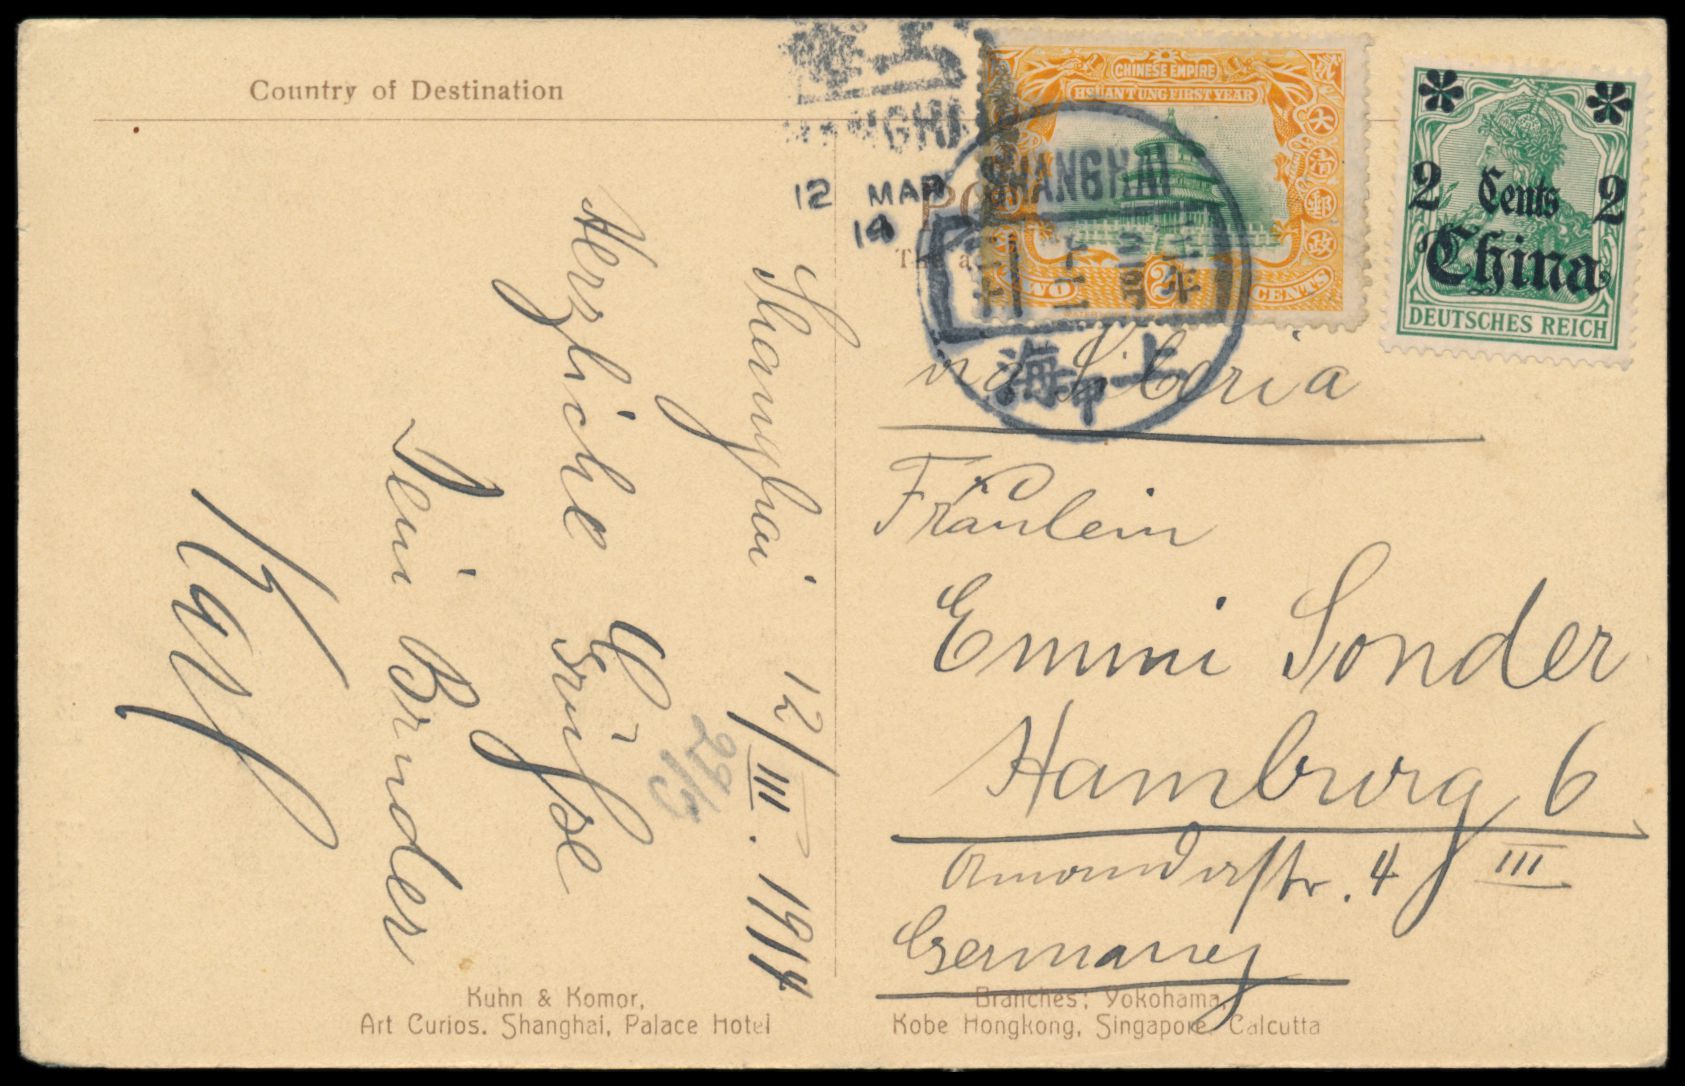 Country of Destination
上
SHANGHAI
12 MAR
14
CHINESE EMPIRE
HSUANTUNG FIRST YEAR
大
清
郵
政
TWO 2 CENTS
SHANGHAI
上海
2 Cents 2
China
DEUTSCHES REICH
via Siberia
Fräulein
Emmi Sonder
Hamburg 6
Amandastr. 4 III
Germany
Shanghai 12/III. 1914
Herzliche Grüsse
Dein Bruder
29/3
Kuhn & Komor,
Art Curios. Shanghai, Palace Hotel
Branches: Yokohama,
Kobe Hongkong, Singapore, Calcutta